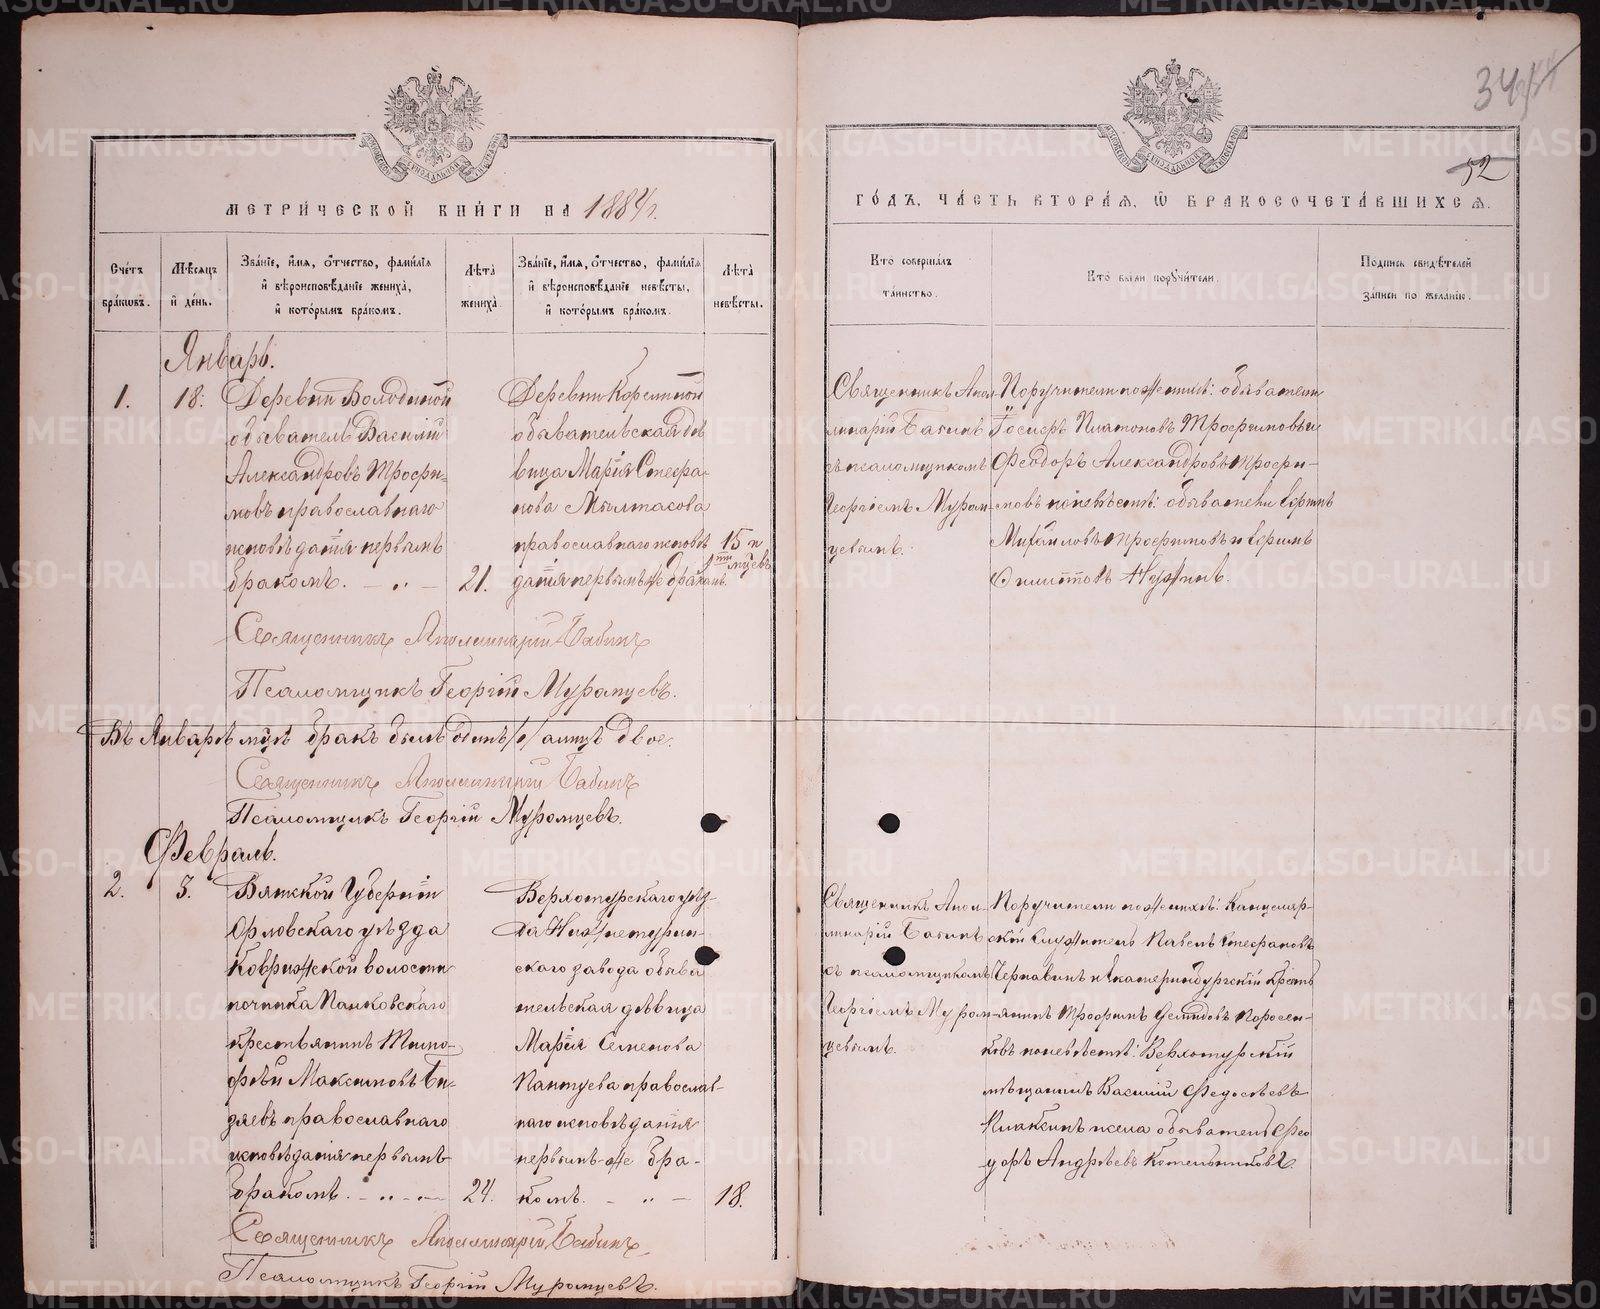 МЕТРИ́ЧЕСКОЙ КНИ́ГИ НА 1884 г.
Сче́тъ бра́ковъ.
Мѣ́сяцъ и҆ де́нь.
Зва́нїе, и҆́мя, ѻ҆́тчество, фами́лїя и҆ вѣроисповѣ́данїе жениха̀, и҆ кото́рымъ бра́комъ.
Лѣ́та жениха̀.
Зва́нїе, и҆́мя, ѻ҆́тчество, фами́лїя и҆ вѣроисповѣ́данїе невѣ́сты, и҆ кото́рымъ бра́комъ.
Лѣ́та невѣ́сты.
Январь.
1.
18.
Деревни Володиной
обыватель Василій
Александровъ Трофи-
мовъ православнаго
исповѣданія первымъ
бракомъ.
21.
Деревни
обывательская дѣ
вица Марія Стефа-
нова Мылтасова
православнаго исповѣ
данія первымъ же бракомъ.
15 и
мцевъ
Священникъ Аполлинарій Бабинъ
Псаломщикъ Георгій Муромцевъ.
Въ Январѣ мцѣ бракъ былъ одинъ /1/ а лицъ двое.
Священникъ Аполлинарій Бабинъ
Псаломщикъ Георгій Муромцевъ.
Февраль.
2.
3.
Вятской Губерніи
Орловскаго уѣзда
Коврижской волости
починка Панковскаго
крестьянинъ Тимо-
фѣй Максимовъ Би-
зяевъ православнаго
исповѣданія первымъ
бракомъ.
24.
Верхотурскаго уѣз-
да Нижнетурин-
скаго завода обыва
тельская дѣвица
Марія Семенова
Пантуева православ-
наго исповѣданія
первымъ же бра-
комъ.
18.
Священникъ Аполлинарій Бабинъ
Псаломщикъ Георгій Муромцевъ.
34
52
ГО́ДЪ, ЧА́СТЬ ВТОРА́Я, Ѽ БРАКОСОЧЕТА́ВШИХСЯ.
Кто̀ соверша́лъ та́инство.
Кто̀ бы́ли порꙋчи́тели.
Подпись свидѣ́телей за́писи по жела́нїю.
Священникъ Апол-
линарій Бабинъ
съ псаломщикомъ
Георгіемъ Муром-
цевымъ.
Поручители по женихѣ: обыватели
Платоновъ Трофимовъ и
Феодоръ Александровъ Трофи-
мовъ по невѣстѣ: обыватели Ефимъ
Михайловъ Трофимовъ и Ефимъ
Священникъ Апол-
линарій Бабинъ
съ псаломщикомъ
Георгіемъ Муром-
цевымъ.
Поручители по женихѣ: Канцеляр-
скій служитель Павелъ Стефановъ
Чернавинъ и Екатеринбургскій кресть
янинъ Трофимъ Демидовъ Поросен-
ковъ по невѣстѣ: Верхотурскій
мѣщанинъ Василій Федосѣевъ
обыватель Фео
доръ Андрѣевъ Котельниковъ.